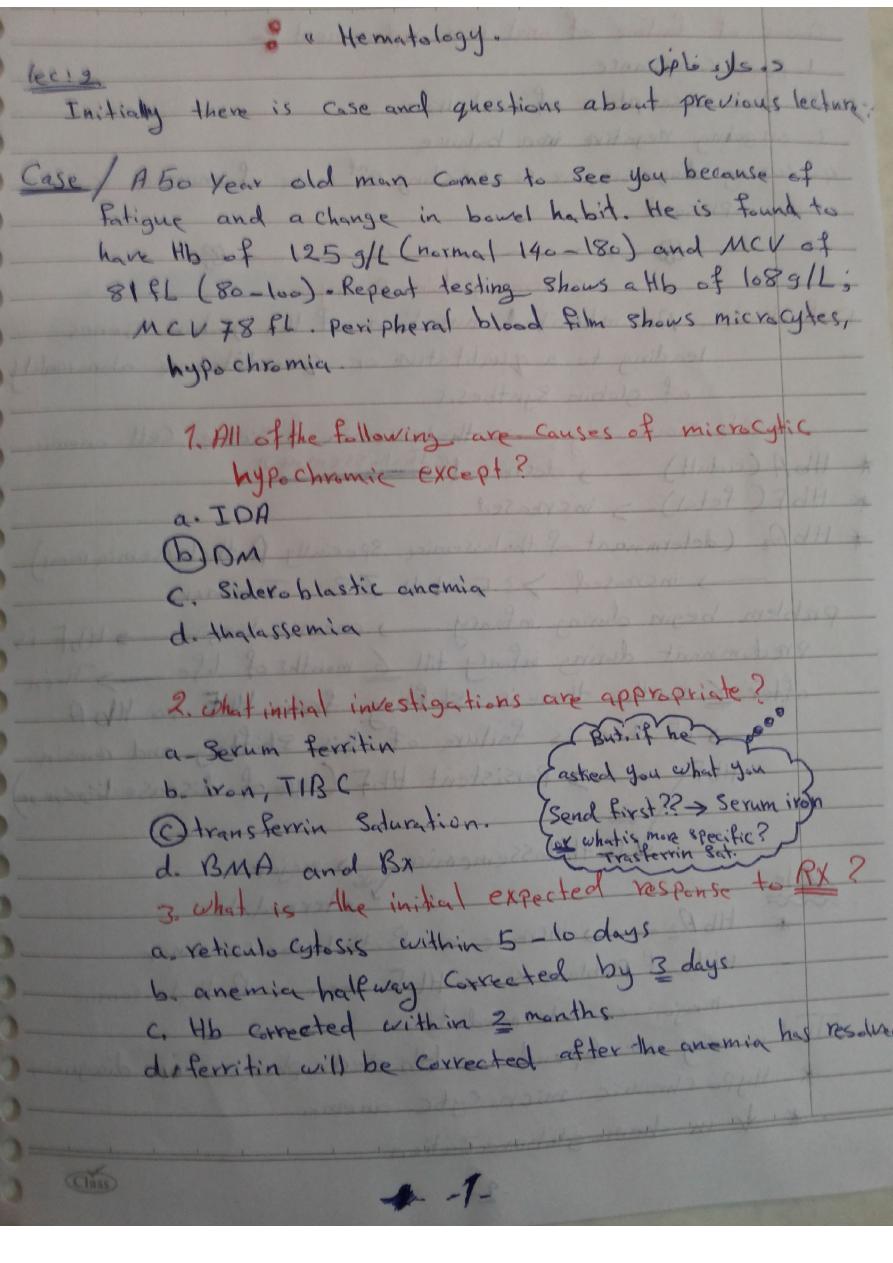 " Hematology.
د. علاء فاضل
lec: 2
Initially there is case and questions about previous lecture.
Case / A 50 year old man comes to see you because of
fatigue and a change in bowel habit. He is found to
have Hb of 125 g/L (normal 140-180) and MCV of
81 fL (80-100). Repeat testing shows a Hb of 108 g/L;
MCV 78 fL. peripheral blood film shows microcytes,
hypochromia.
1. All of the following are causes of microcytic
hypochromic except?
a. IDA
b) DM
c. Sideroblastic anemia
d. thalassemia
2. what initial investigations are appropriate?
a- Serum ferritin
b. iron, TIBC
c) transferrin saturation.
d. BMA and Bx
But, if he
asked you what you
send first?? → Serum iron
or what is more specific?
Trasferrin sat.
3. what is the initial expected response to RX ?
a. reticulocytosis within 5-10 days
b. anemia halfway corrected by 3 days.
c. Hb corrected within 2 months.
d. ferritin will be corrected after the anemia has resolve
Class
-1-